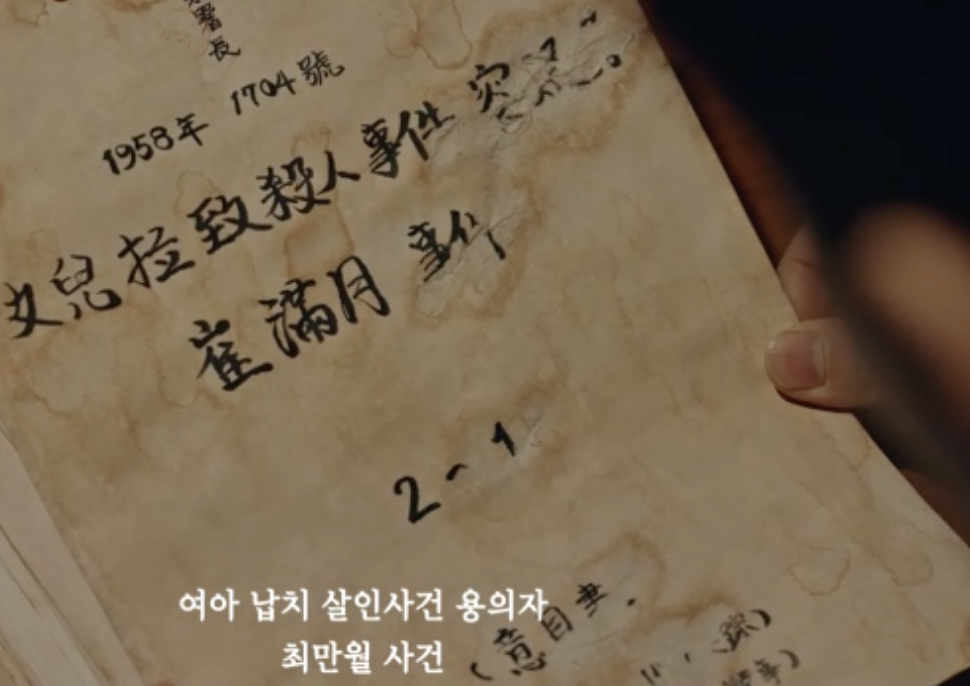 署長
1958年 1704號
女兒拉致殺人事件
崔滿月 事件
2-1
여아 납치 살인사건 용의자
최만월 사건